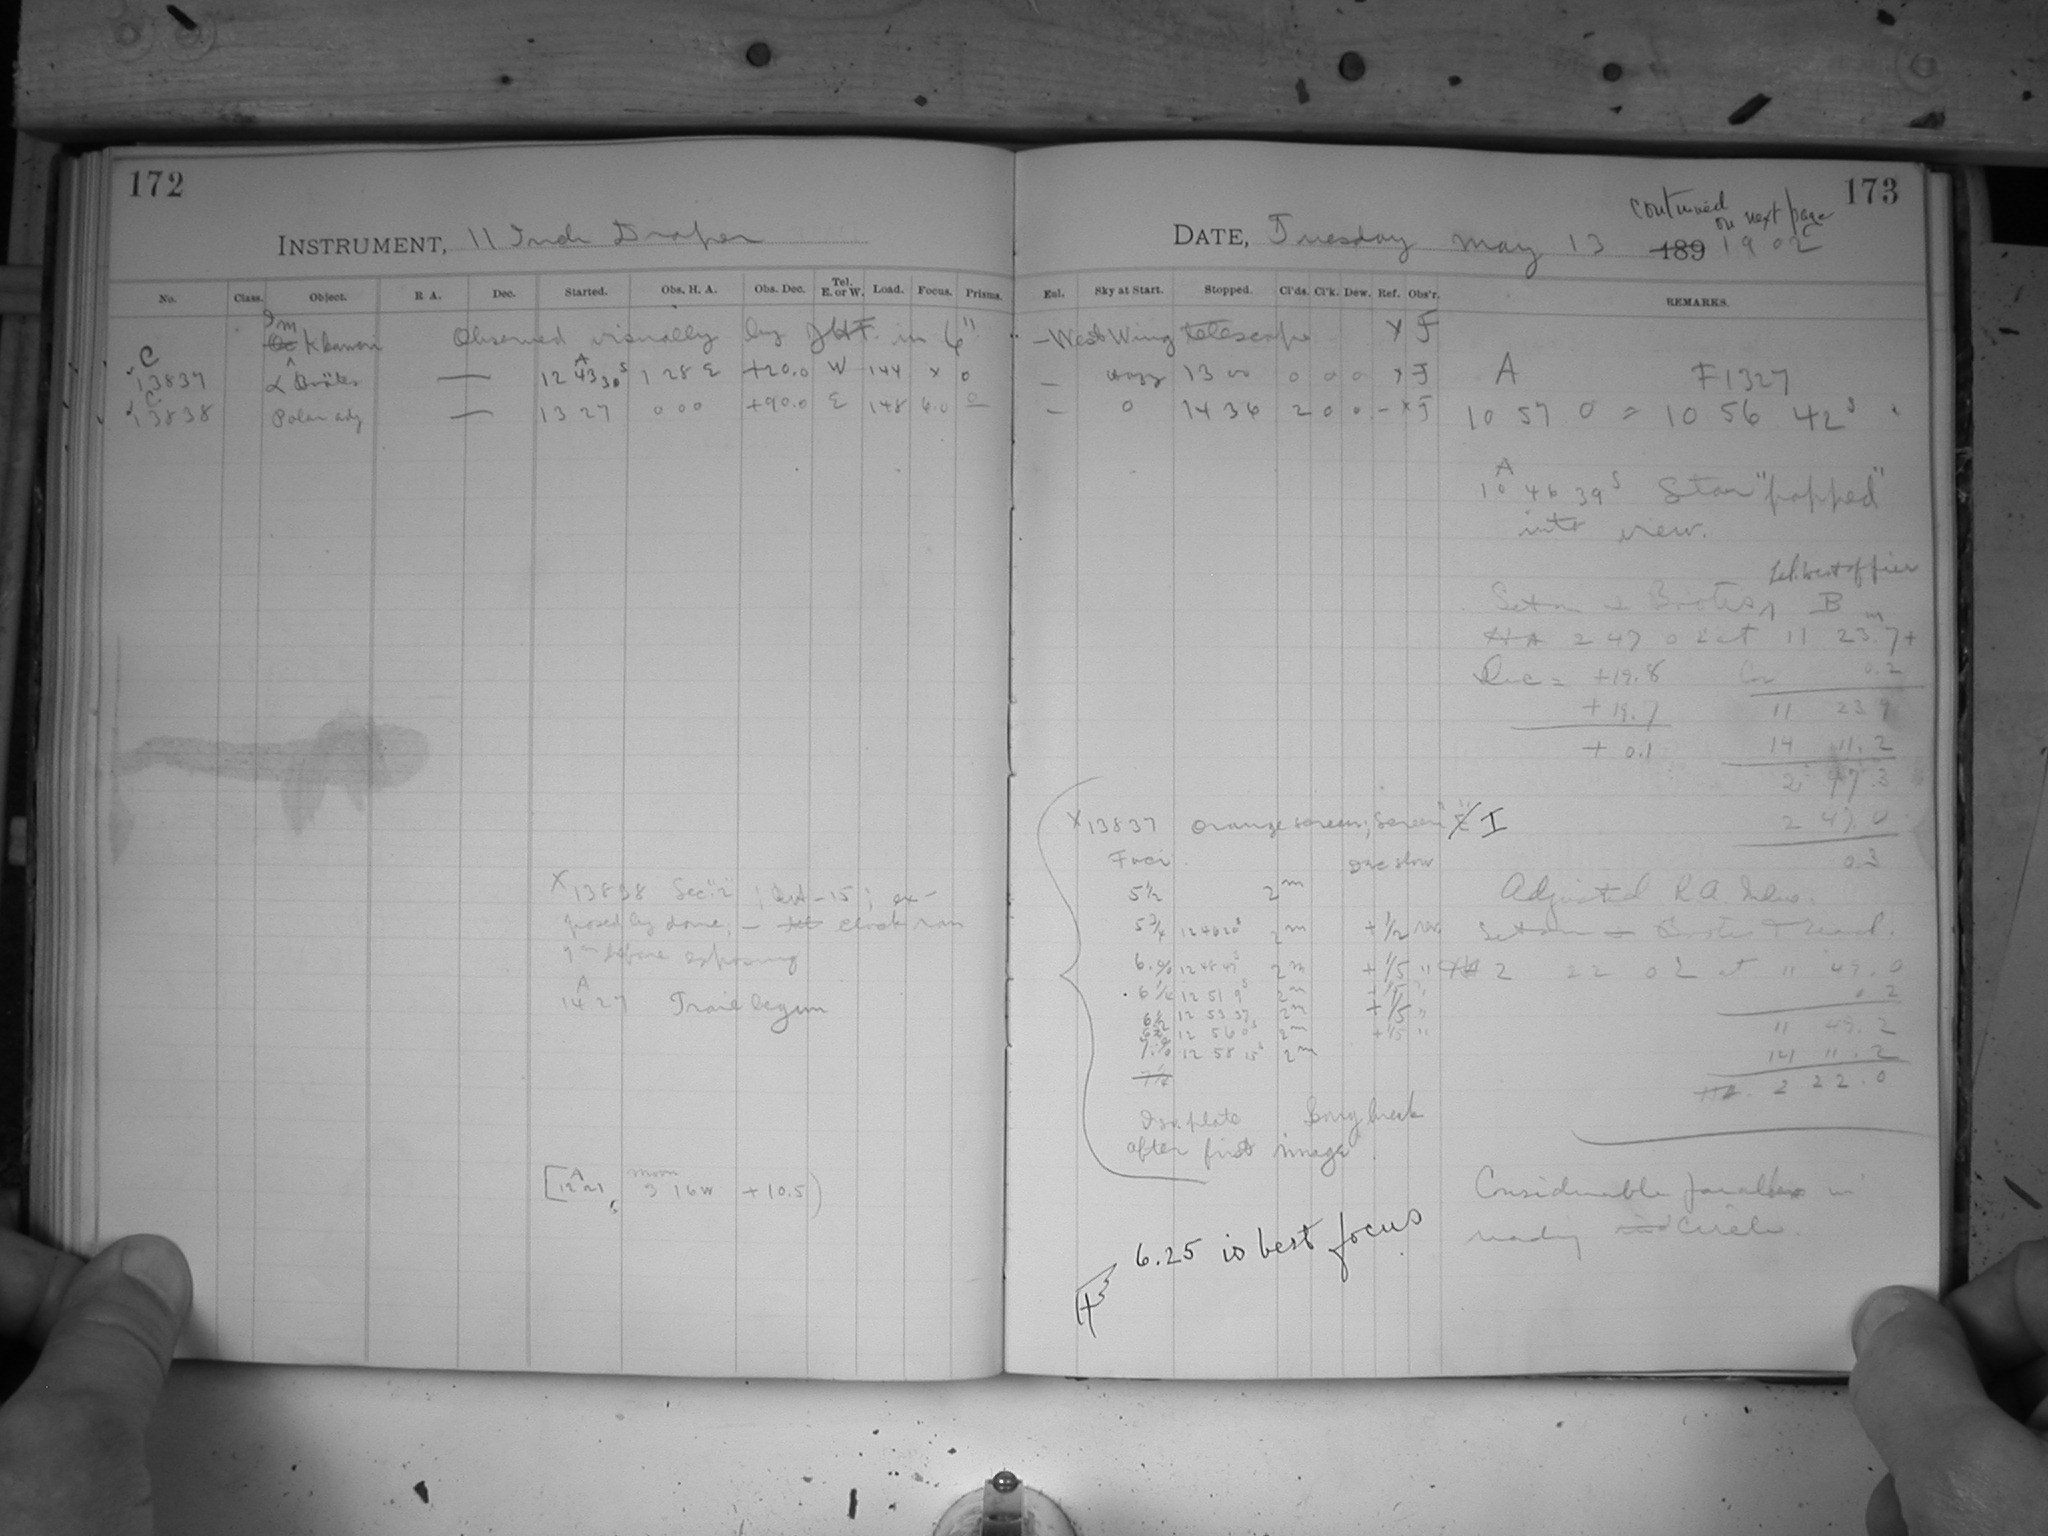 172
INSTRUMENT, 11 Inch Draper
No. Class. Object. R A. Dec. Started. Obs. H. A. Obs. Dec. Tel. E. or W. Load. Focus. Prisms.
Observed visually by in 6"
C 13837 α Bootes — 12 43 30 s 1 28 E +20.0 W 144 x 0
C 13838 Polar adj — 13 27 0 00 +90.0 E 148 6.0 0
X 13838 Sec "2"; -15; ex-
posed by dome; — clock ran
before exposing
A
14 27 Trail begun
[12 21 moon 3 16 W +10.5)
173
continued
on next page
DATE, Tuesday May 13 189 1902
Enl. Sky at Start. Stopped. Cl'ds. Cl'k. Dew. Ref. Obs'r. REMARKS.
— West Wing telescope x F
— Hazy 13 00 0 0 0 F
— 0 14 36 2 0 0 – x F
A F1327
10 57 0 = 10 56 42 s
A
10 46 39 s Star "popped"
into view.
Tel. west of pier
Set on α Bootes, B
HA 2 47 0 E at 11 23.7 +
Dec = +19.8 0.2
+19.7 11 23 9
+ 0.1 14 11.2
2 47.3
2 47.0
0.3
Adjusted R A Index.
Set on α Bootes
HA 2 22 0 E at 11 49.0
0 2
11 49.2
14 11.2
HA. 2 22.0
Considerable parallax in
reading circle.
X 13837 orange screen; Screen "I
Foci Dec slow
5 1/2 2 m
5 3/4 12 46 20 s 2 m + 1/2 rev
6.0 12 48 47 s 2 m + 1/5 "
6 1/4 12 51 9 s 2 m + 1/5 "
6 1/2 12 53 37 2 m + 1/5 "
12 56 0 s 2 m + 1/5 "
7.0 12 58 15 s 2 m
7 1/4
Iso plate Long break
after first image
6.25 is best focus